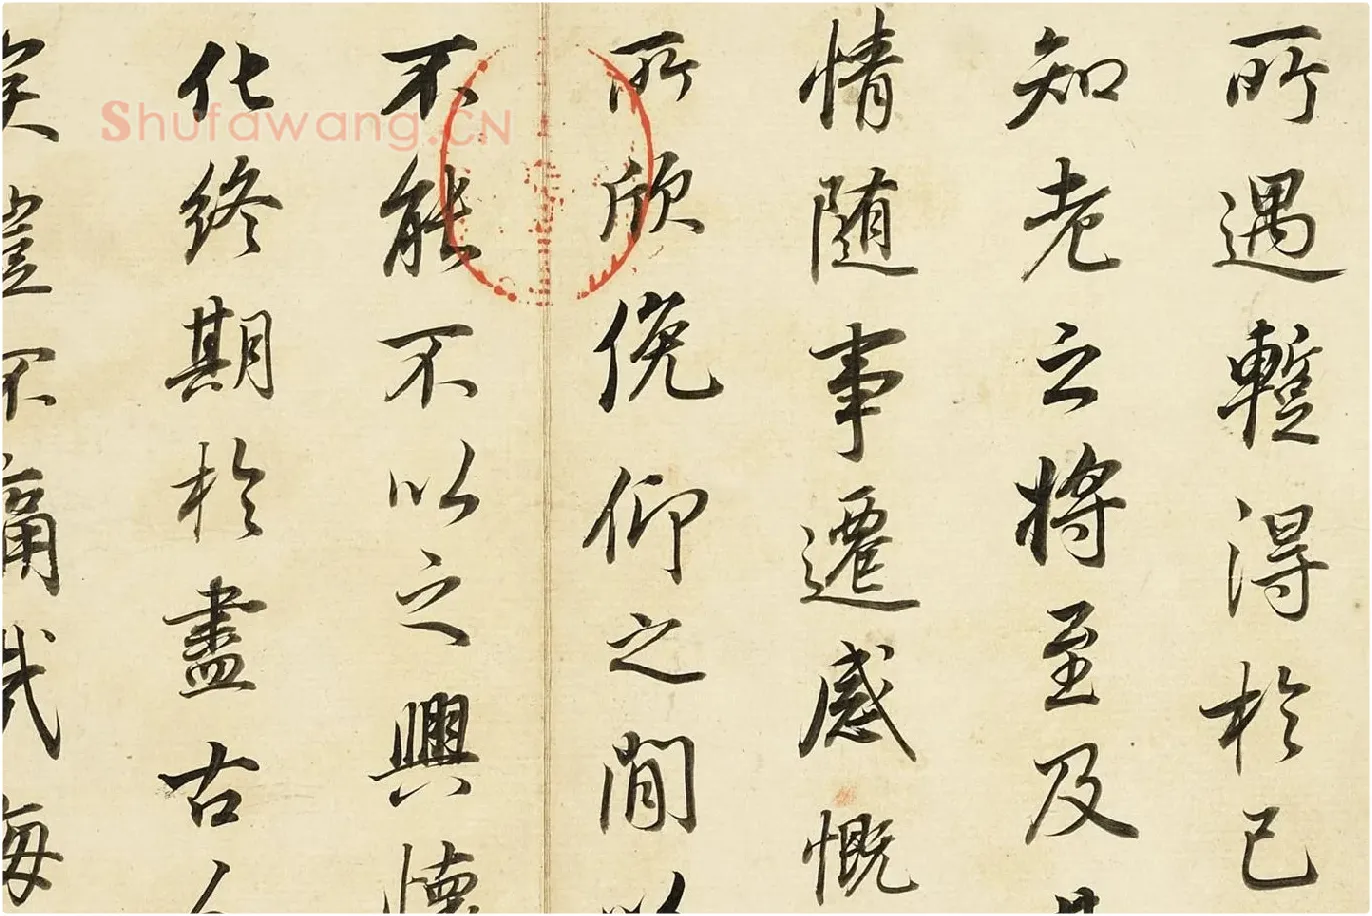 所遇暫得於己
知老之將至及其
情隨事遷感慨
所欣俛仰之間以
不能不以之興懷
化終期於盡古人
矣豈不痛哉每
Shufawang.CN